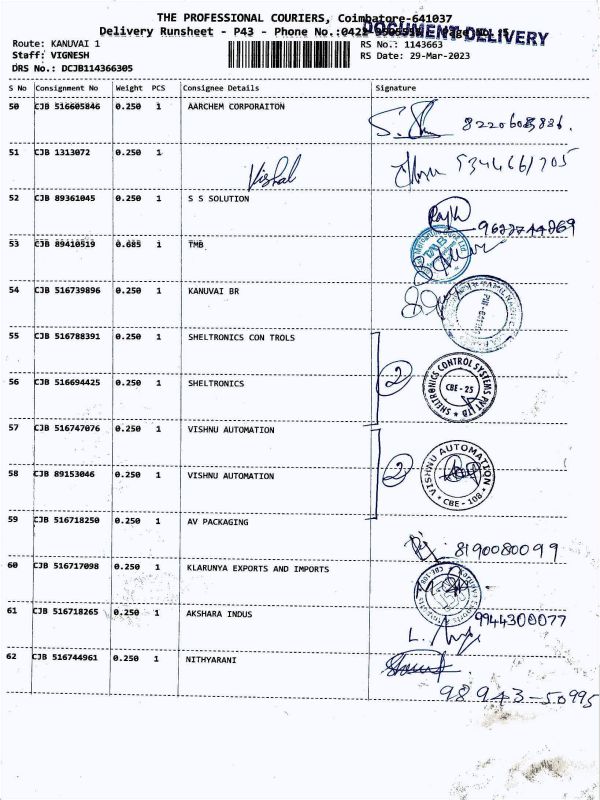 THE PROFESSIONAL COURIERS, Coimbatore-641037
Delivery Runsheet - P43 - Phone No.:0422
DOCUMENT DELIVERY
Route: KANUVAI 1
RS No.: 1143663
Staff: VIGNESH
RS Date: 29-Mar-2023
DRS No.: DCJB114366305
S No Consignment No Weight PCS Consignee Details Signature
50 CJB 516605846 0.250 1 AARCHEM CORPORAITON
51 CJB 1313072 0.250 1
Vishal
52 CJB 89361045 0.250 1 S S SOLUTION
53 CJB 89410519 0.685 1 TMB
54 CJB 516739896 0.250 1 KANUVAI BR
55 CJB 516788391 0.250 1 SHELTRONICS CON TROLS
56 CJB 516694425 0.250 1 SHELTRONICS
2
SHELTRONICS CONTROL SYSTEMS PVT LTD
CBE - 25
57 CJB 516747076 0.250 1 VISHNU AUTOMATION
58 CJB 89153046 0.250 1 VISHNU AUTOMATION
2
VISHNU AUTOMATION
CBE - 108
59 CJB 516718250 0.250 1 AV PACKAGING
8190080099
60 CJB 516717098 0.250 1 KLARUNYA EXPORTS AND IMPORTS
61 CJB 516718265 0.250 1 AKSHARA INDUS
9944300077
62 CJB 516744961 0.250 1 NITHYARANI
98943-50995